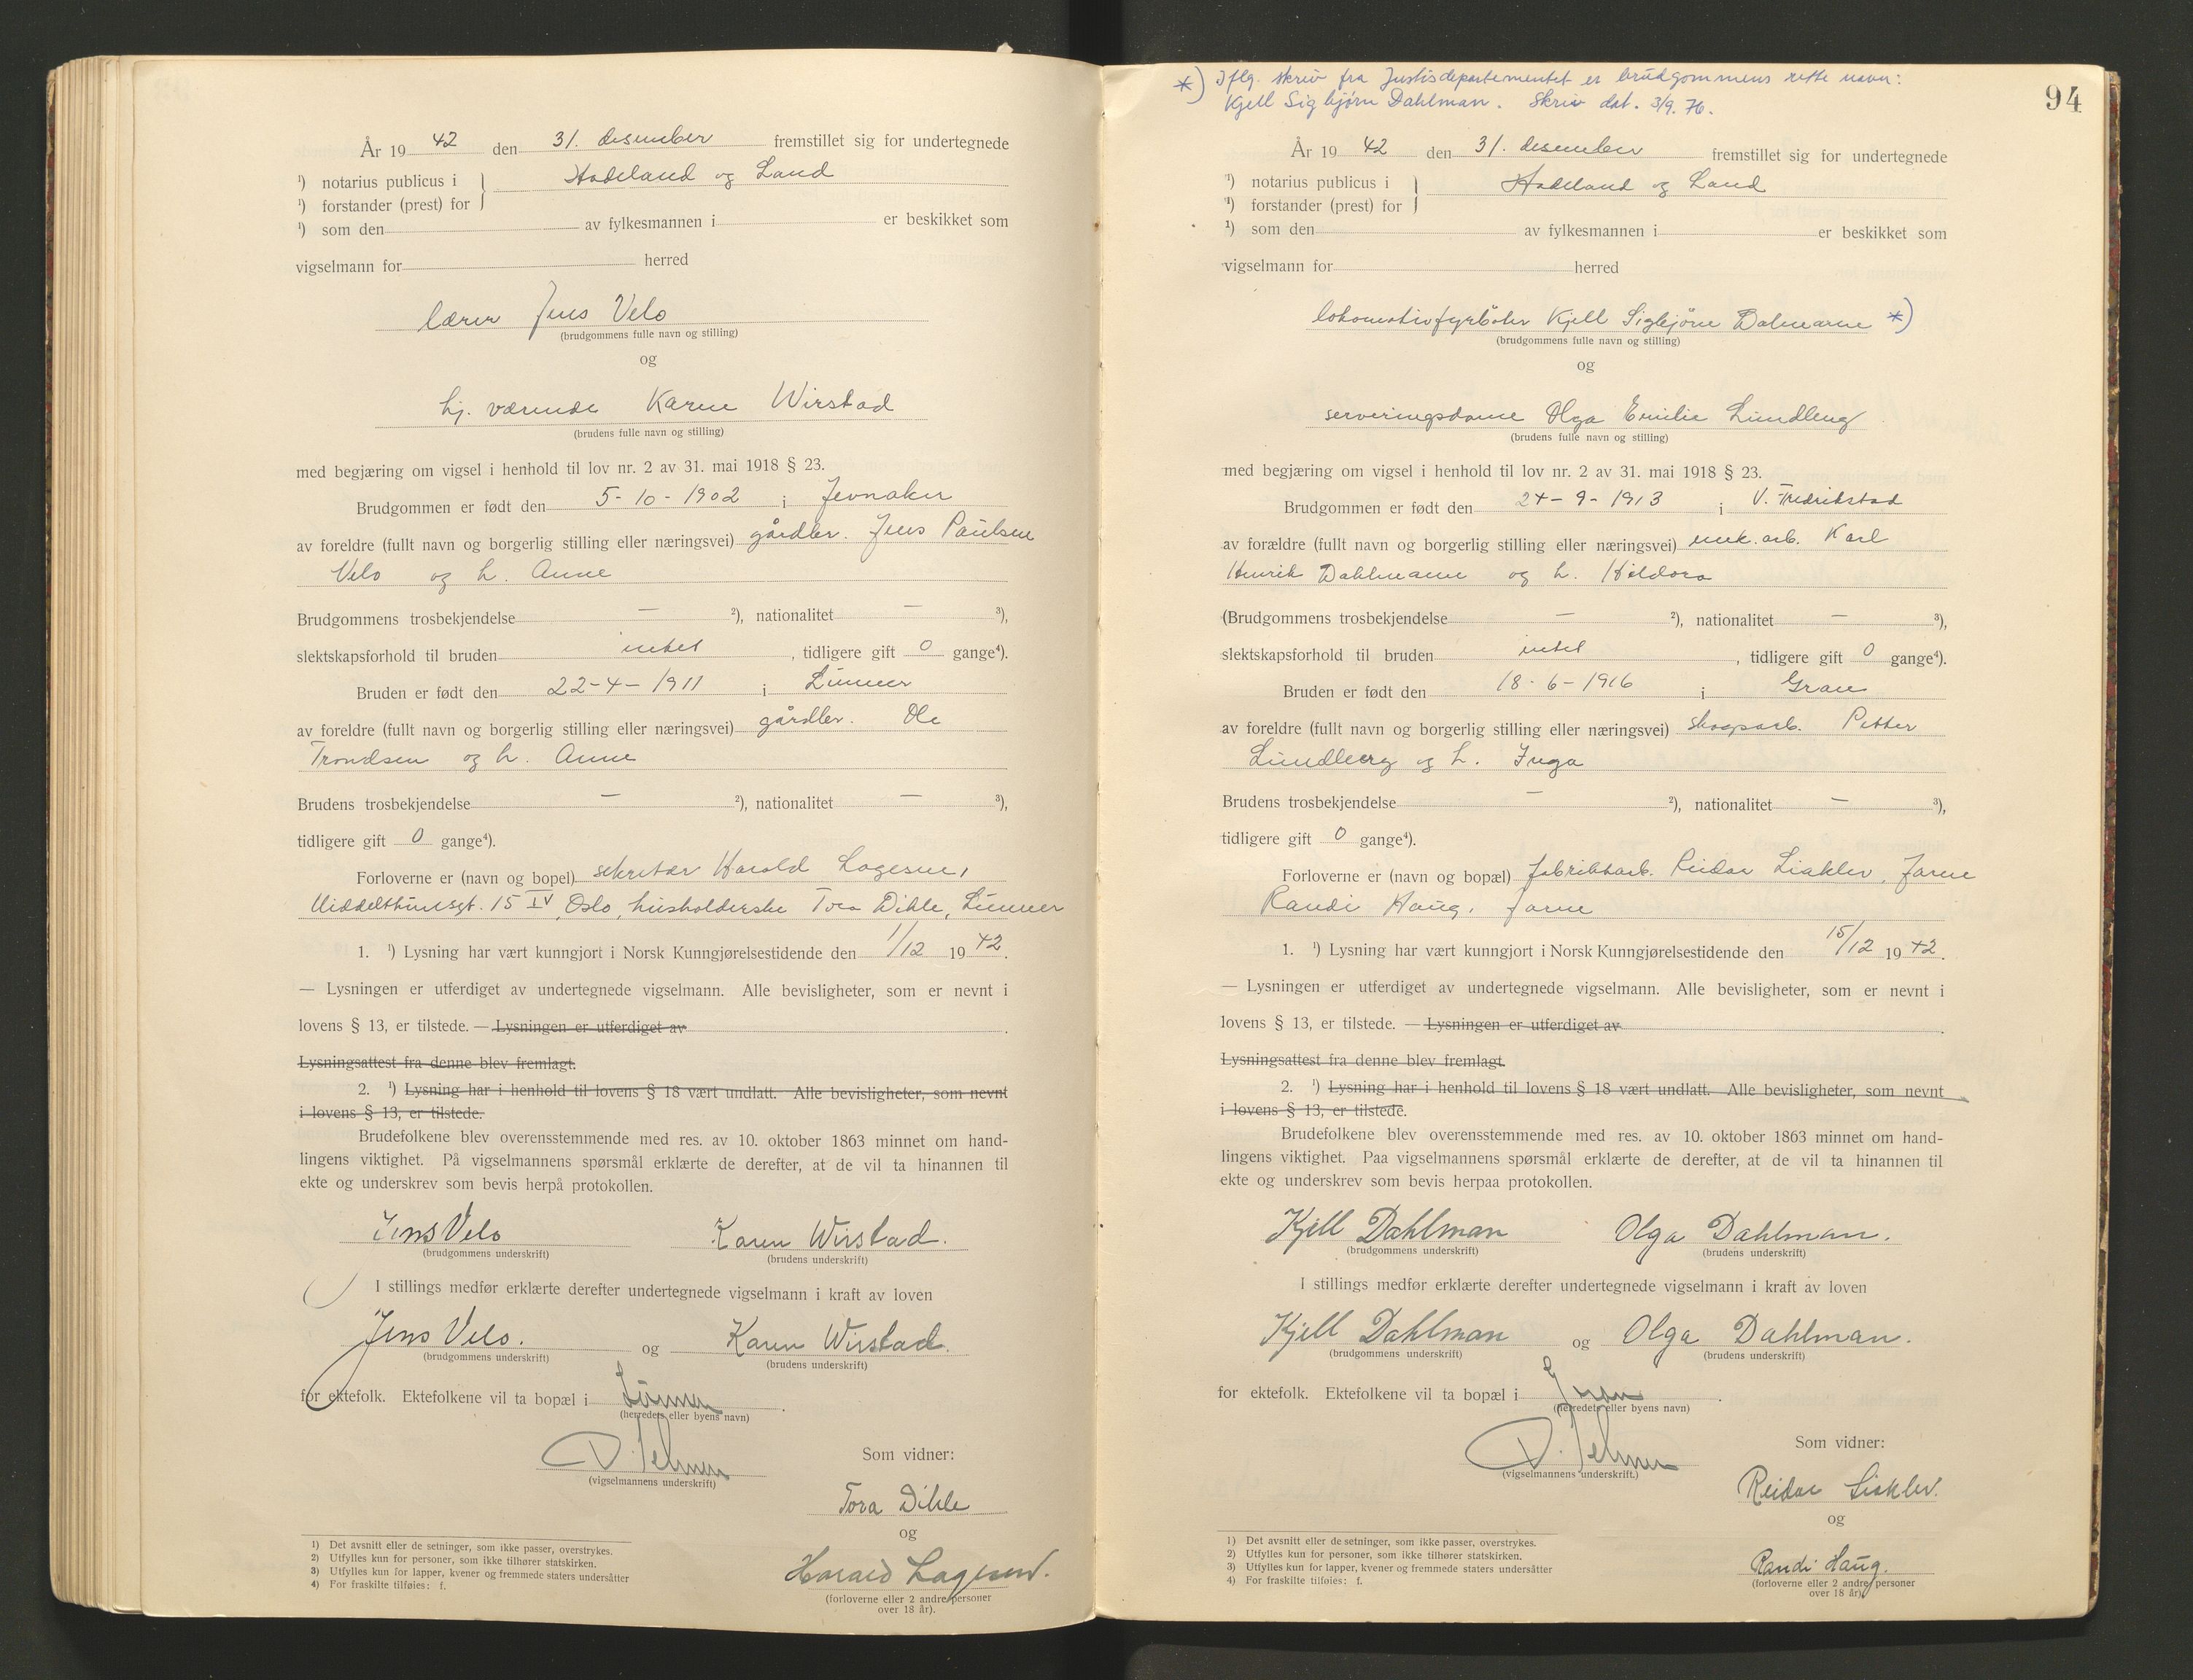 År 19 42 den 31. desember fremstillet sig for undertegnede
¹) notarius publicus i } Hadeland og Land
¹) forstander (prest) for
¹) som den av fylkesmannen i er beskikket som
vigselmann for herred
lærer Jens Velo
(brudgommens fulle navn og stilling)
og
hj. værende Karen Wirstad
(brudens fulle navn og stilling)
med begjæring om vigsel i henhold til lov nr. 2 av 31. mai 1918 § 23.
Brudgommen er født den 5-10-1902 i Jevnaker
av foreldre (fullt navn og borgerlig stilling eller næringsvei) gårdbr. Jens Paulsen
Velo og h. Anne
Brudgommens trosbekjendelse — ²), nationalitet — ³),
slektskapsforhold til bruden intet , tidligere gift 0 gange⁴).
Bruden er født den 22-4-1911 i Lunner
av foreldre (fullt navn og borgerlig stilling eller næringsvei) gårdbr. Ole
Trondsen og h. Anne
Brudens trosbekjendelse — ²), nationalitet — ³),
tidligere gift 0 gange⁴).
Forloverne er (navn og bopel) sekretær Harald Lagesen,
Middelthunsgt. 15 IV, Oslo, husholderske Tora Dihle, Lunner
1. ¹) Lysning har vært kunngjort i Norsk Kunngjørelsestidende den 1/12 19 42.
— Lysningen er utferdiget av undertegnede vigselmann. Alle bevisligheter, som er nevnt i
lovens § 13, er tilstede. — Lysningen er utferdiget av .
Lysningsattest fra denne blev fremlagt.
2. ¹) Lysning har i henhold til lovens § 18 vært undlatt. Alle bevisligheter, som nevnt
i lovens § 13, er tilstede.
Brudefolkene blev overensstemmende med res. av 10. oktober 1863 minnet om hand-
lingens viktighet. På vigselmannens spørsmål erklærte de derefter, at de vil ta hinannen til
ekte og underskrev som bevis herpå protokollen.
Jens Velo Karen Wirstad.
(brudgommens underskrift) (brudens underskrift)
I stillings medfør erklærte derefter undertegnede vigselmann i kraft av loven
Jens Velo. og Karen Wirstad.
(brudgommens underskrift) (brudens underskrift)
for ektefolk. Ektefolkene vil ta bopæl i Lunner .
(herredets eller byens navn)
(vigselmannens underskrift)
Som vidner:
Tora Dihle
og
Harald Lagesen.
(forloverne eller 2 andre personer
over 18 år).
1) Det avsnitt eller de setninger, som ikke passer, overstrykes.
2) Utfylles kun for personer, som ikke tilhører statskirken.
3) Utfylles kun for lapper, kvener og fremmede staters undersåtter
4) For fraskilte tilføies: f.
*) Iflg. skriv fra Justisdepartementet er brudgommens rette navn:
Kjell Sigbjørn Dahlman. Skriv dat. 3/9. 76.
94
År 19 42 den 31. desember fremstillet sig for undertegnede
¹) notarius publicus i } Hadeland og Land
¹) forstander (prest) for
¹) som den av fylkesmannen i er beskikket som
vigselmann for herred
lokomotivfyrbøter Kjell Sigbjørn Dalmann *)
(brudgommens fulle navn og stilling)
og
serveringsdame Olga Emilie Lundberg
(brudens fulle navn og stilling)
med begjæring om vigsel i henhold til lov nr. 2 av 31. mai 1918 § 23.
Brudgommen er født den 24-9-1913 i V. Fredrikstad
av forældre (fullt navn og borgerlig stilling eller næringsvei) mek. arb. Karl
Henrik Dahlmann og h. Hildora
(Brudgommens trosbekjendelse — ²), nationalitet — ³),
slektskapsforhold til bruden intet , tidligere gift 0 gange⁴).
Bruden er født den 18-6-1916 i Gran
av foreldre (fullt navn og borgerlig stilling eller næringsvei) skogsarb. Petter
Lundberg og h. Inga
Brudens trosbekjendelse — ²), nationalitet — ³),
tidligere gift 0 gange⁴).
Forloverne er (navn og bopæl) fabrikkarb. Reidar Liaklev, Jaren
Randi Haug, Jaren
1. ¹) Lysning har vært kunngjort i Norsk Kunngjørelsestidende den 15/12 19 42.
— Lysningen er utferdiget av undertegnede vigselmann. Alle bevisligheter, som er nevnt i
lovens § 13, er tilstede. — Lysningen er utferdiget av .
Lysningsattest fra denne blev fremlagt.
2. ¹) Lysning har i henhold til lovens § 18 vært undlatt. Alle bevisligheter, som nevnt
i lovens § 13, er tilstede.
Brudefolkene blev overensstemmende med res. av 10. oktober 1863 minnet om hand-
lingens viktighet. Paa vigselmannens spørsmål erklærte de derefter, at de vil ta hinannen til
ekte og underskrev som bevis herpaa protokollen.
Kjell Dahlman Olga Dahlman.
(brudgommens underskrift) (brudens underskrift)
I stillings medfør erklærte derefter undertegnede vigselmann i kraft av loven
Kjell Dahlman og Olga Dahlman.
(brudgommens underskrift) (brudens underskrift)
for ektefolk. Ektefolkene vil ta bopæl i Gran .
(herredets eller byens navn)
(vigselmannens underskrift.)
Som vidner:
Reidar Liaklev.
og
Randi Haug.
(forloverne eller 2 andre personer
over 18 år).
1) Det avsnitt eller de setninger, som ikke passer, overstrykes.
2) Utfylles kun for personer, som ikke tilhører statskirken.
3) Utfylles kun for lapper, kvener og fremmede staters undersåtter
4) For fraskilte tilføies: f.